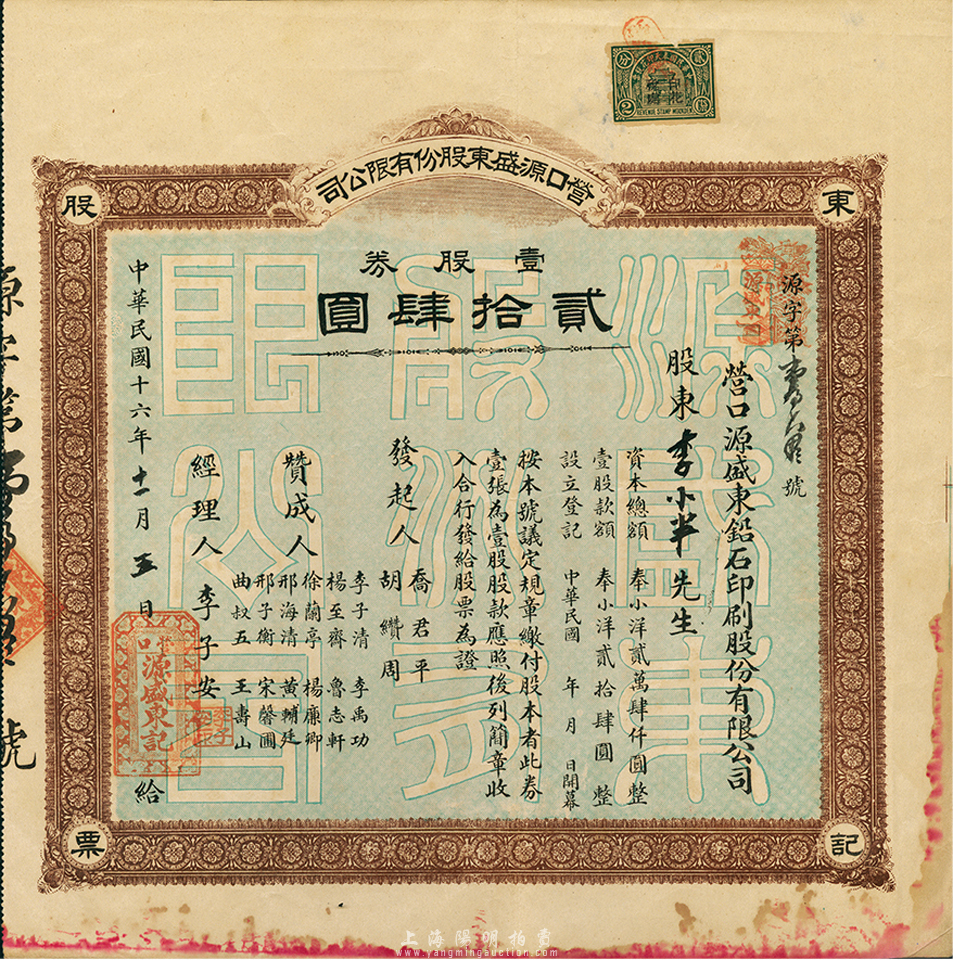 貳分
2
印花稅票
REVENUE STAMP MOUKDEN
營口源盛東股份有限公司
東
記
股
票
壹股券
貳拾肆圓
源字第
號
營口源盛東鉛石印刷股份有限公司
股東李小半先生
資本總額 奉小洋貳萬肆仟圓整
壹股款額 奉小洋貳拾肆圓整
設立登記 中華民國 年 月 日開幕
按本號議定規章繳付股本者此券
壹張為壹股股款應照後列簡章收
入合行發給股票為證
發起人 喬君平
胡纘周
贊成人 李子清 李禹功
楊至齊 魯志軒
徐蘭亭 楊廉卿
邢海清 黃輔廷
邢子衡 宋馨圃
曲叔五 王壽山
經理人 李子安
中華民國十六年十一月五日 給
營口源盛東記
源字第
號
源盛東股份有限公司
上海陽明拍賣
www.yangmingauction.com